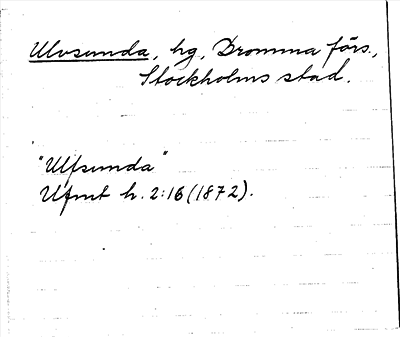 Ulvsunda, hg, Bromma förs.,
Stockholms stad.
"Ulfsunda"
Ufmt h. 2:16 (1872).